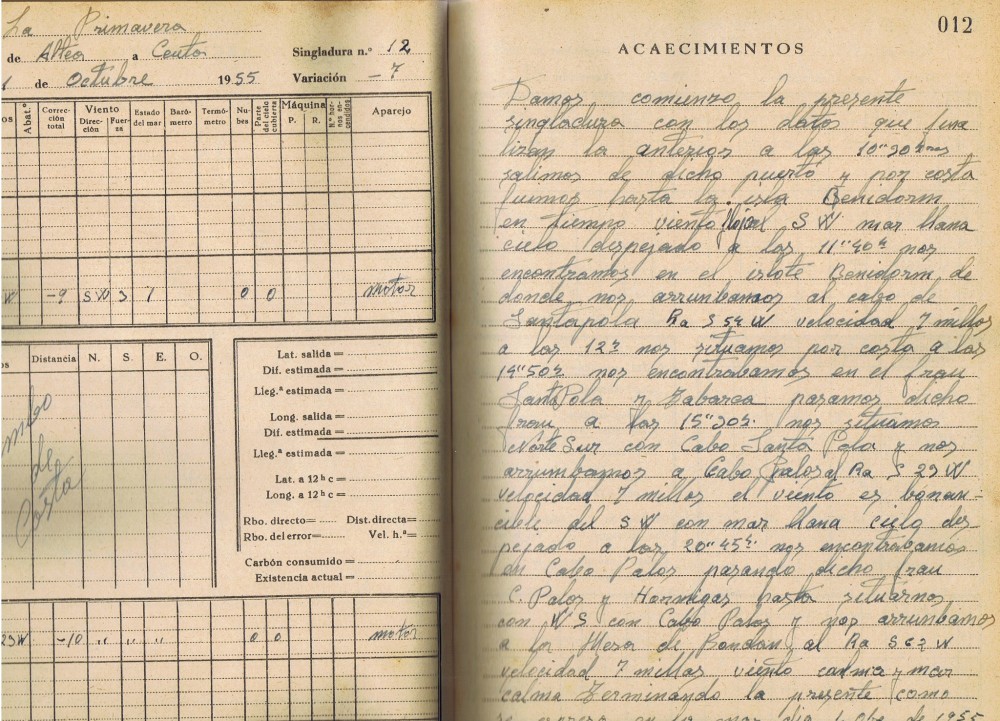 La Primavera
de Altea a Ceuta
Singladura n.º 12
1 de Octubre 1955
Variación -7
os
Abat.º
Corrección total
Viento
Dirección
Fuerza
Estado del mar
Barómetro
Termómetro
Nubes
Parte del cielo cubierta
Máquina
P. R.
N.º hornos encendidos
Aparejo
W -9 SW 3 1 0 0 motor
os Distancia N. S. E. O.
mbo
de
Costa
Lat. salida =
Dif. estimada =
Lleg.ª estimada =
Long. salida =
Dif. estimada =
Lleg.ª estimada =
Lat. a 12ʰ c =
Long. a 12ʰ c =
Rbo. directo= Dist. directa=
Rbo. del error= Vel. h.ª=
Carbón consumido =
Existencia actual =
29W -10 " " " 0 0 motor
012
ACAECIMIENTOS
Damos comienzo la presente
singladura con los datos que fina
lizan la anterios a las 10"30
salimos de dicho puerto y por costa
fuimos hasta la isla Benidorm
en tiempo viento flojal SW mar llana
cielo despejado a las 11"40ᵐ nos
encontramos en el islote Benidorm de
donde nos arrunbamos al cabo de
Santapola Ra S 54 W velocidad 7 millas
a las 12ʰ nos situamos por costa a las
14"50ᵐ nos encontrabamos en el frau
SantaPola y Tabarca pasamos dicho
frau a las 15"30ᵐ nos situamos
Norte Sur con Cabo Santa Pola y nos
arrumbamos a Cabo Palos al Ra S 29 W
velocidad 7 millas el viento es bonan-
cible del SW con mar llana cielo des
pejado a las 20"45ᵐ nos encontrabamos
en Cabo Palos pasando dicho frau
C. Palos y Hormigas hasta situarnos
con W S. con Cabo Palos y nos arrunbamos
a la Mesa de Rondan al Ra S 62 W
velocidad 7 millas viento calma y mar
calma Terminando la presente como
se expresa en la mar dia 1 Obre de 1955